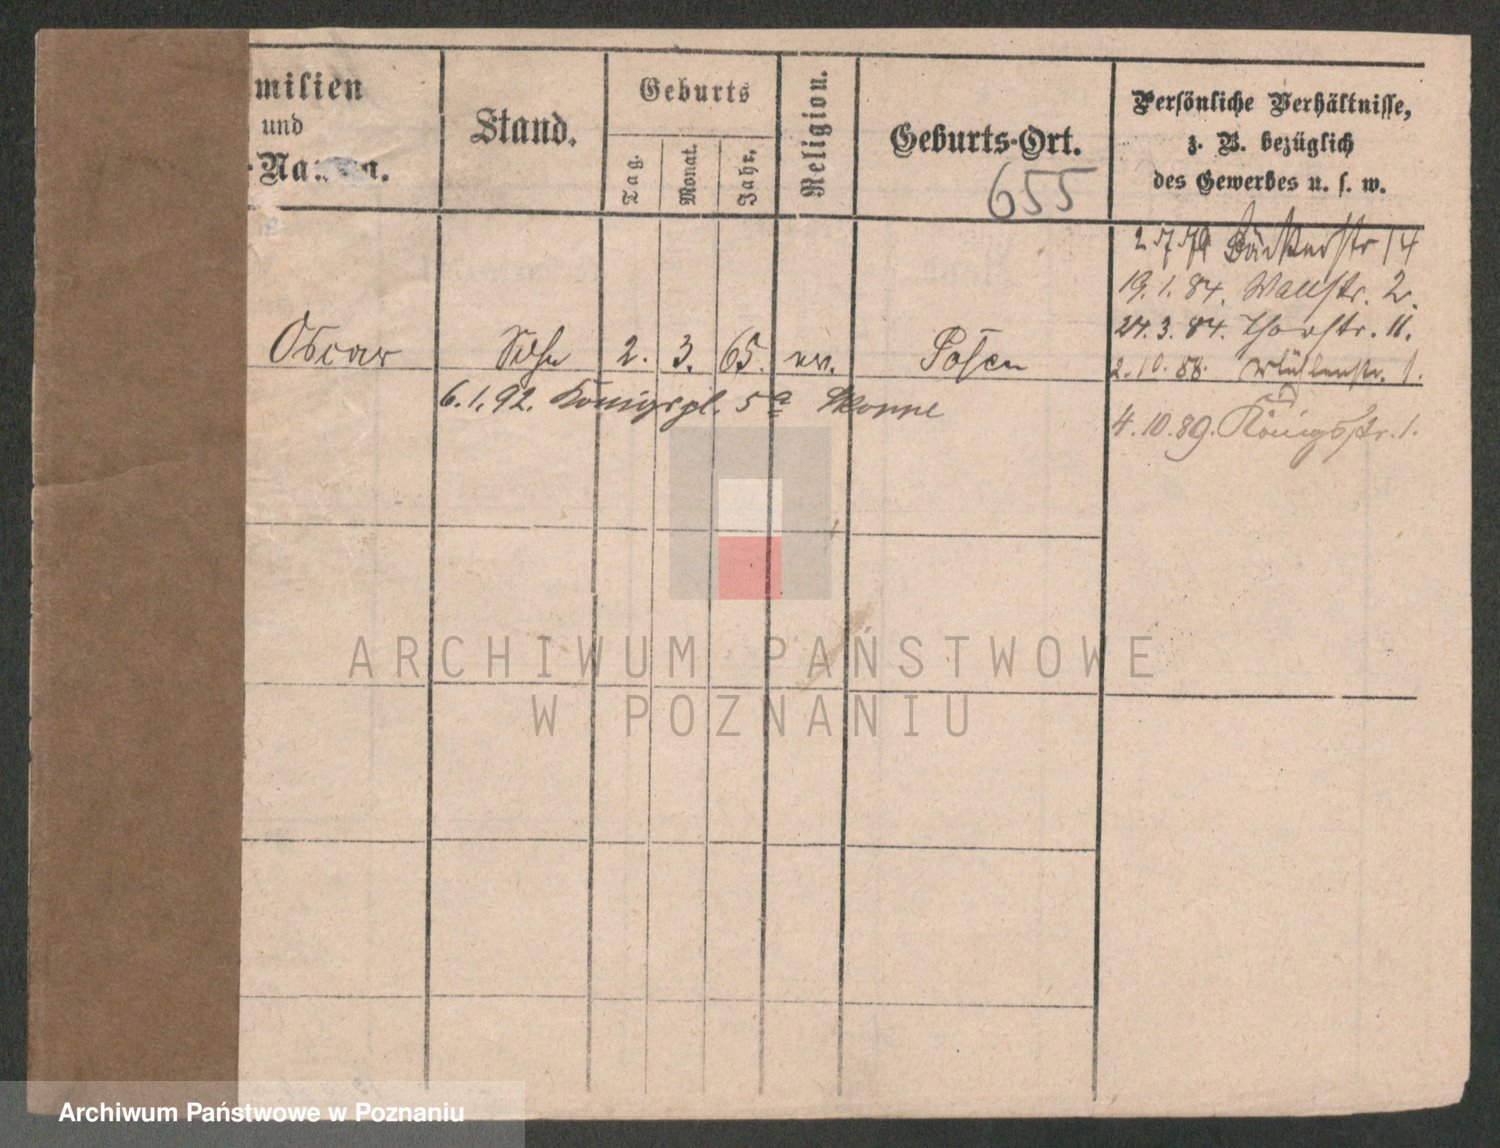 milien
und
-Namen.
Stand.
Geburts
Tag.
Monat.
Jahr.
Religion.
Geburts-Ort.
655
Persönliche Verhältnisse,
z. B. bezüglich
des Gewerbes u. s. w.
Bäckerstr 14
19. 1. 84. Wallstr. 2.
24. 3. 84. Thorstr. 11.
Oscar Sohn 2. 3. 65. ev. Posen
2. 10. 88. Mühlenstr. 1.
6. 1. 92. Königspl. 5a
4. 10. 89. Königsstr. 1.
ARCHIWUM PAŃSTWOWE
W POZNANIU
Archiwum Państwowe w Poznaniu